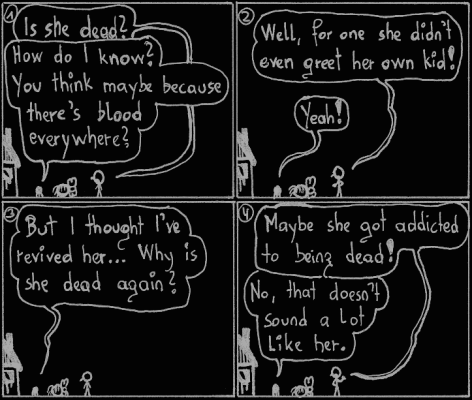 1
Is she dead?
How do I know?
You think maybe because
there's blood
everywhere?
2
Well, for one she didn't
even greet her own kid!
Yeah!
3
But I thought I've
revived her... Why is
she dead again?
4
Maybe she got addicted
to being dead!
No, that doesn't
sound a lot
like her.